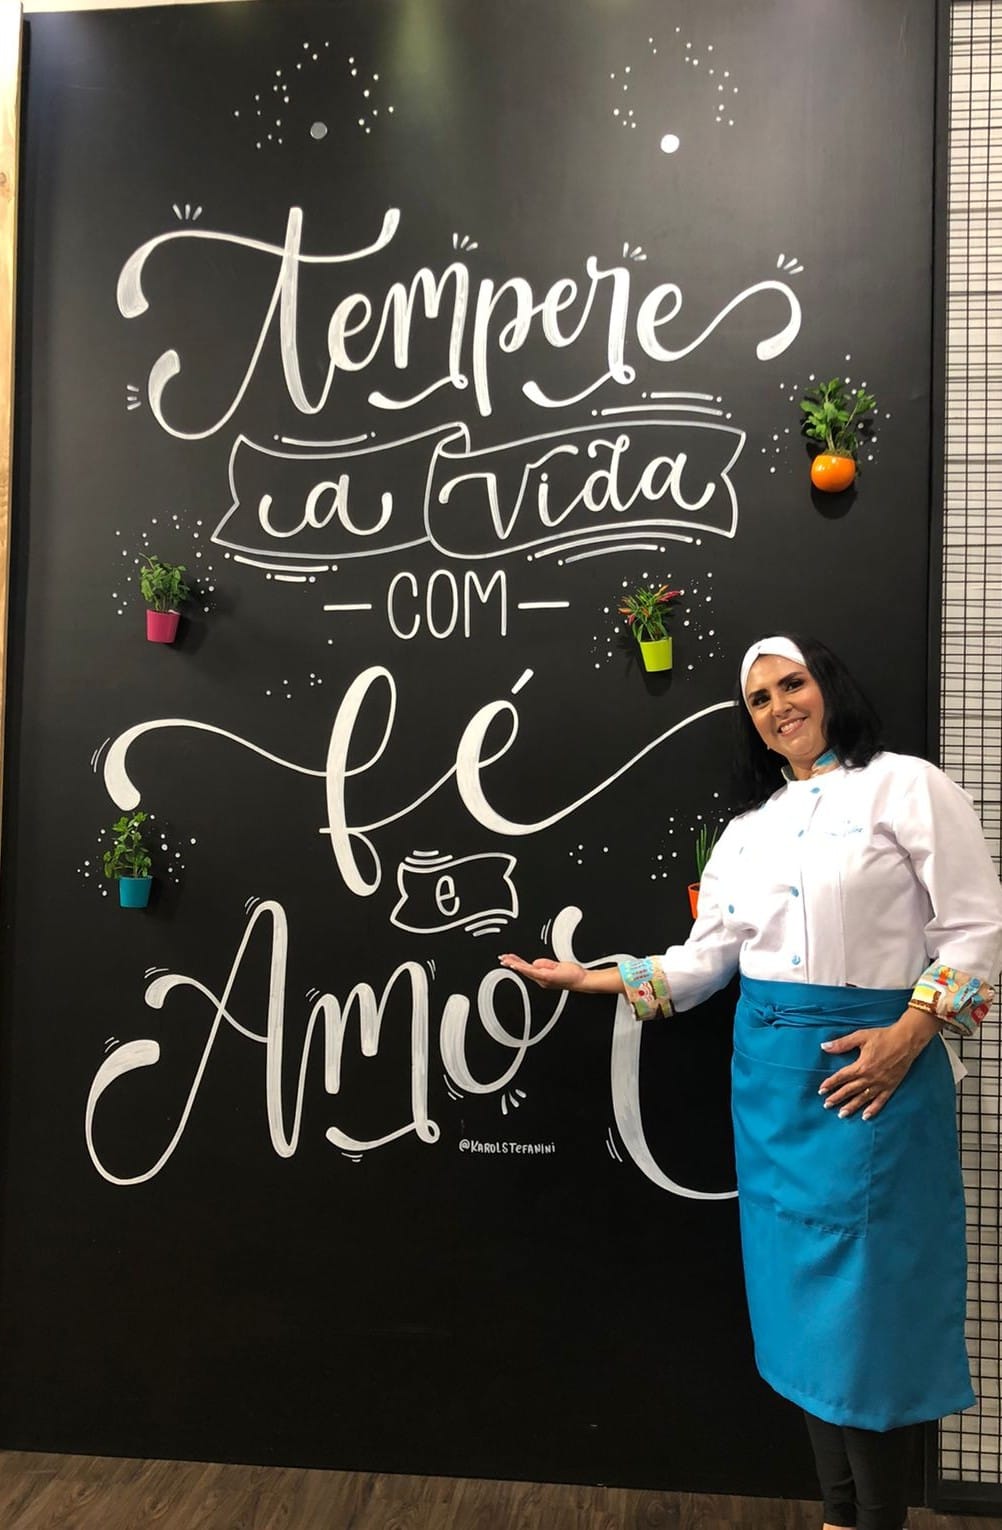 Tempere
a vida
COM
fé
e
Amor
@KAROLSTEFANINI